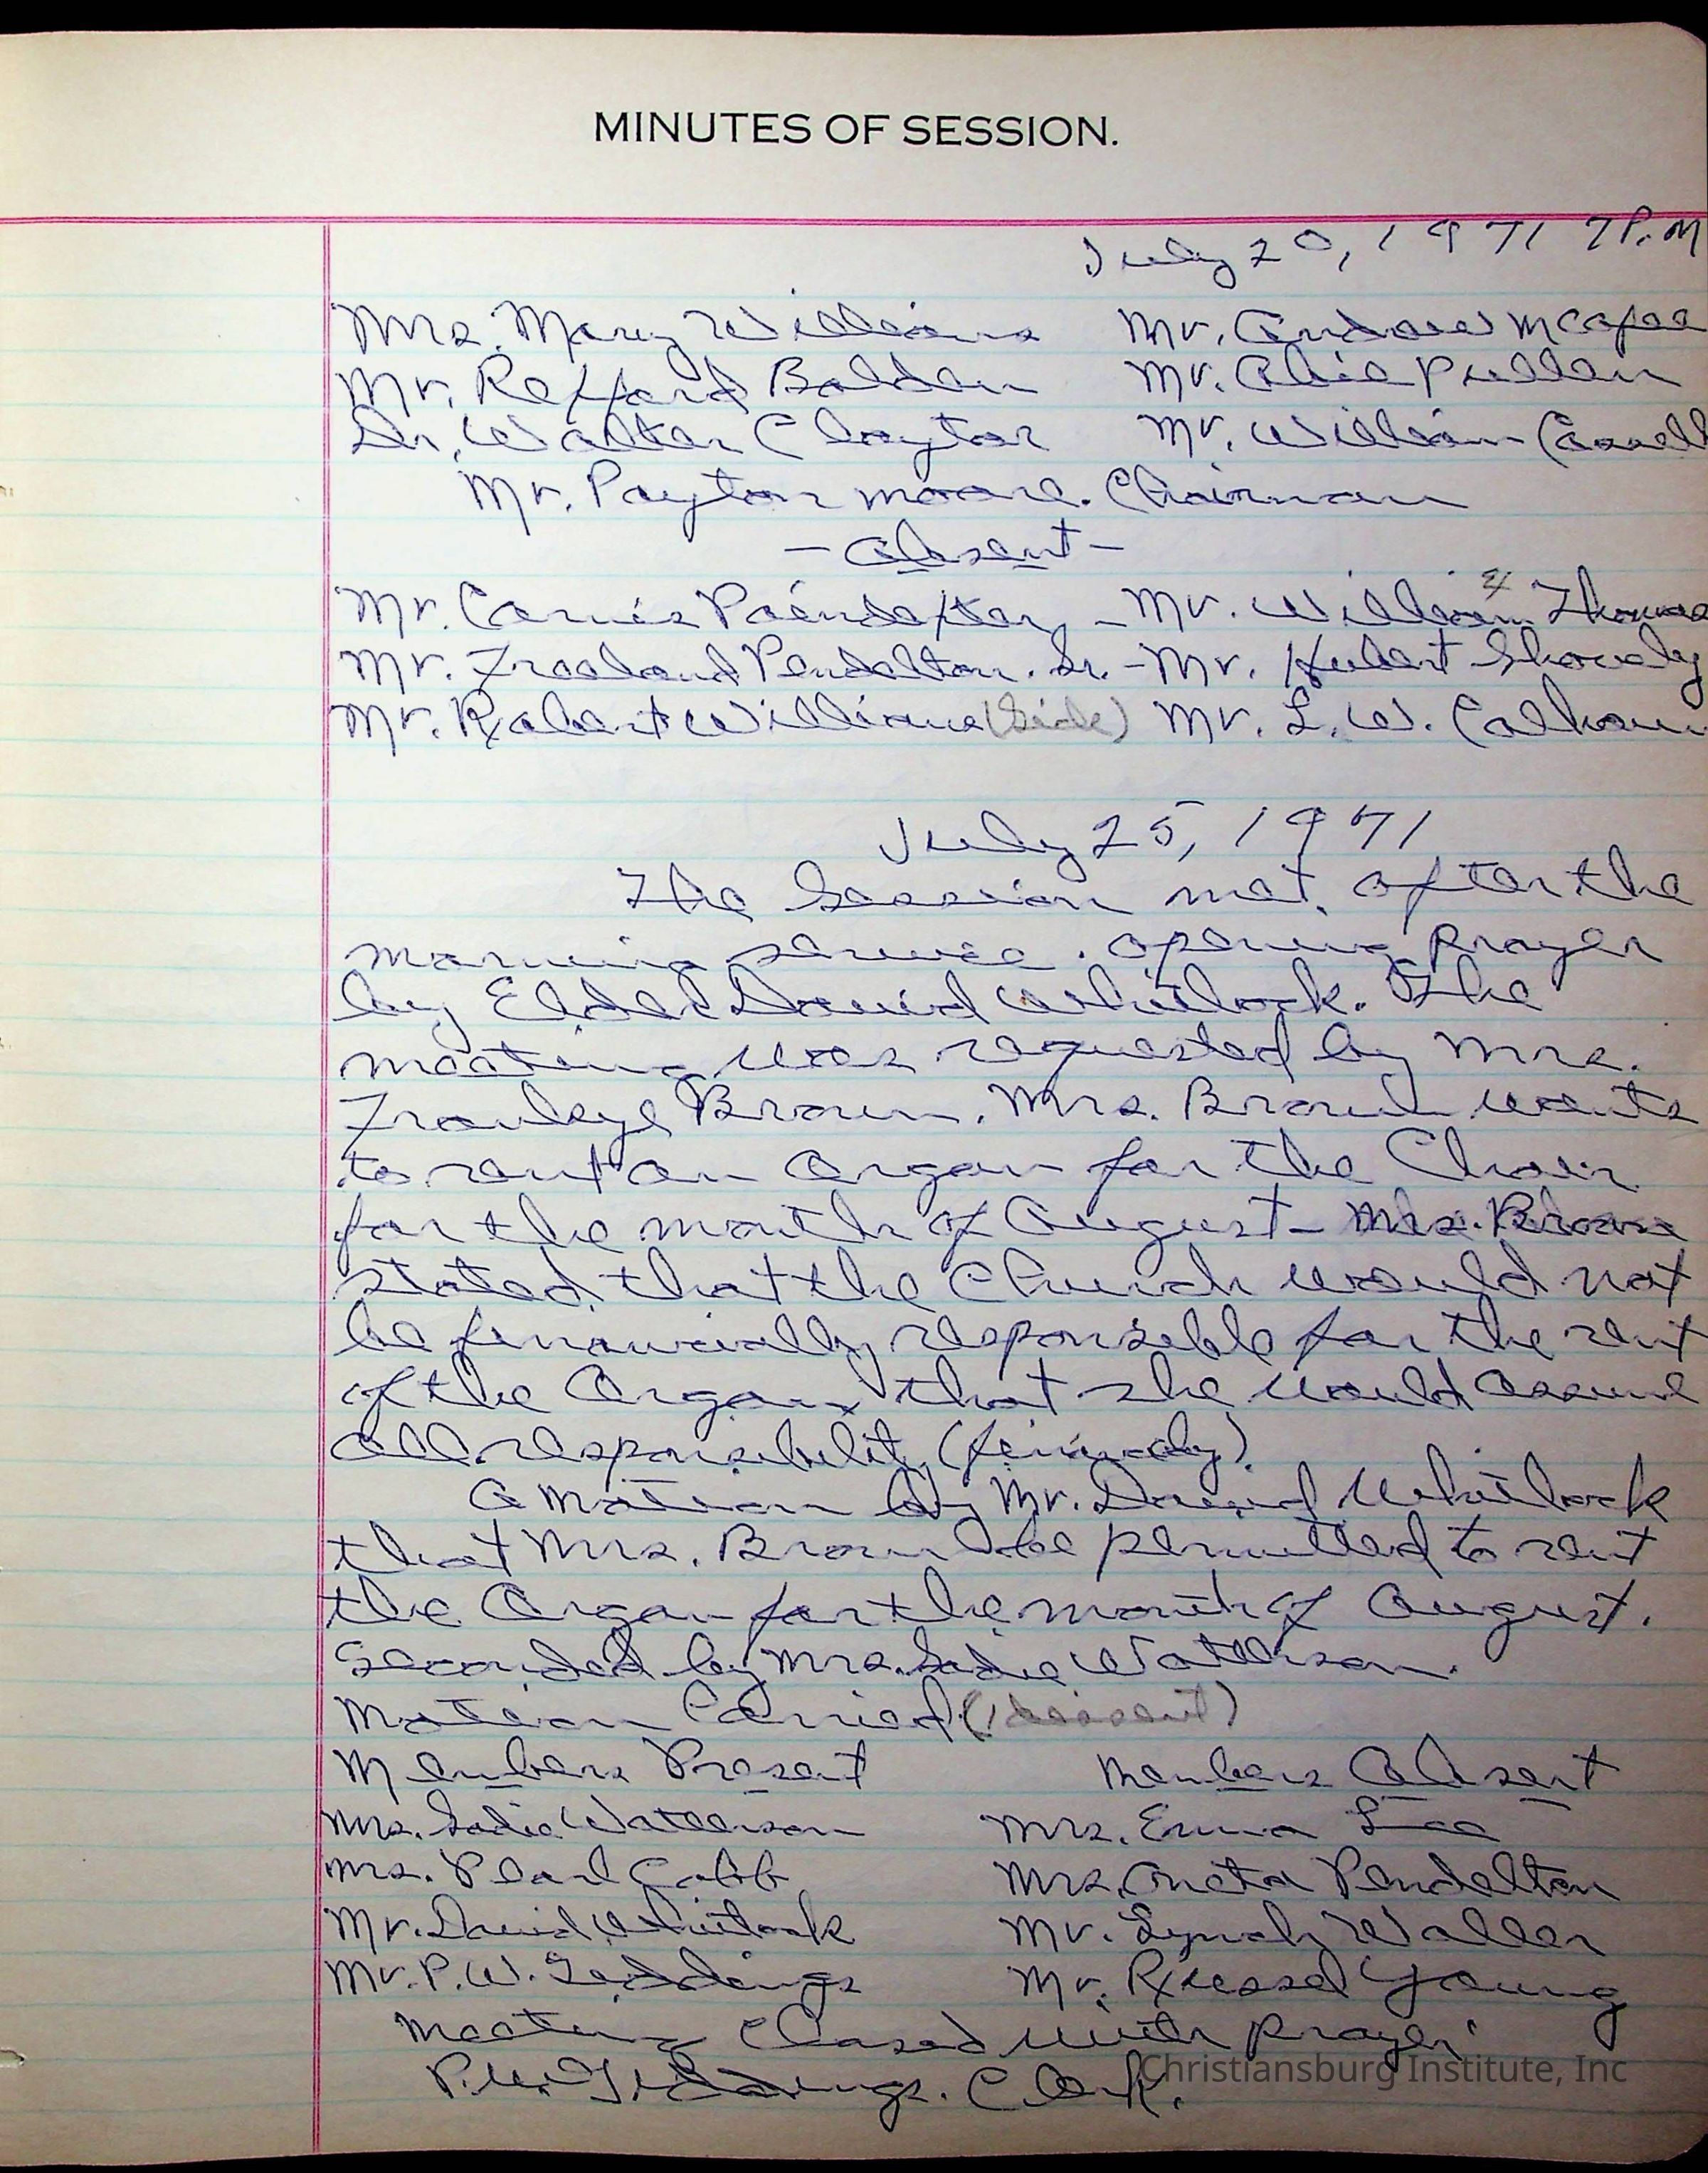 MINUTES OF SESSION.
July 20, 1971 7 P.M
Mrs. Mary Williams Mr. Andrew McAfee
Mr. Refford Balden Mr. Alvie Pullen
Dr. Walter Claytor Mr. William
Mr. Payton Moore. Chairman
- Absent -
Mr. Poindexter - Mr. William Thomas
Mr. Freeland Pendelton. Sr. - Mr. Hubert Shovely
Mr. Robert Williams (Sick) Mr. L. W. Calhoun
July 25, 1971
The Session met, after the
morning service. opening prayer
by Elder David Whitlock. The
meeting was requested by Mrs.
Brown. Mrs. Brown wants
to rent an Organ for the Choir
for the month of August - Mrs. Brown
stated that the Church would not
be financially responsible for the rent
of the Organ, that she would assume
all responsibility
A motion by Mr. David Whitlock
that Mrs. Brown be permitted to rent
the Organ for the month of August.
Seconded by Mrs. Sadie Watterson.
Motion Carried (1 dissent)
Members Present Members Absent
Mrs. Sadie Watterson Mrs. Emma Lee
Mrs. Pearl Cobb Mrs. Oneta Pendelton
Mr. David Whitlock Mr. Lynch Waller
Mr. P. W. Giddings Mr. Russel Young
Meeting Closed with prayer
P. W. Giddings. Clerk.
Christiansburg Institute, Inc